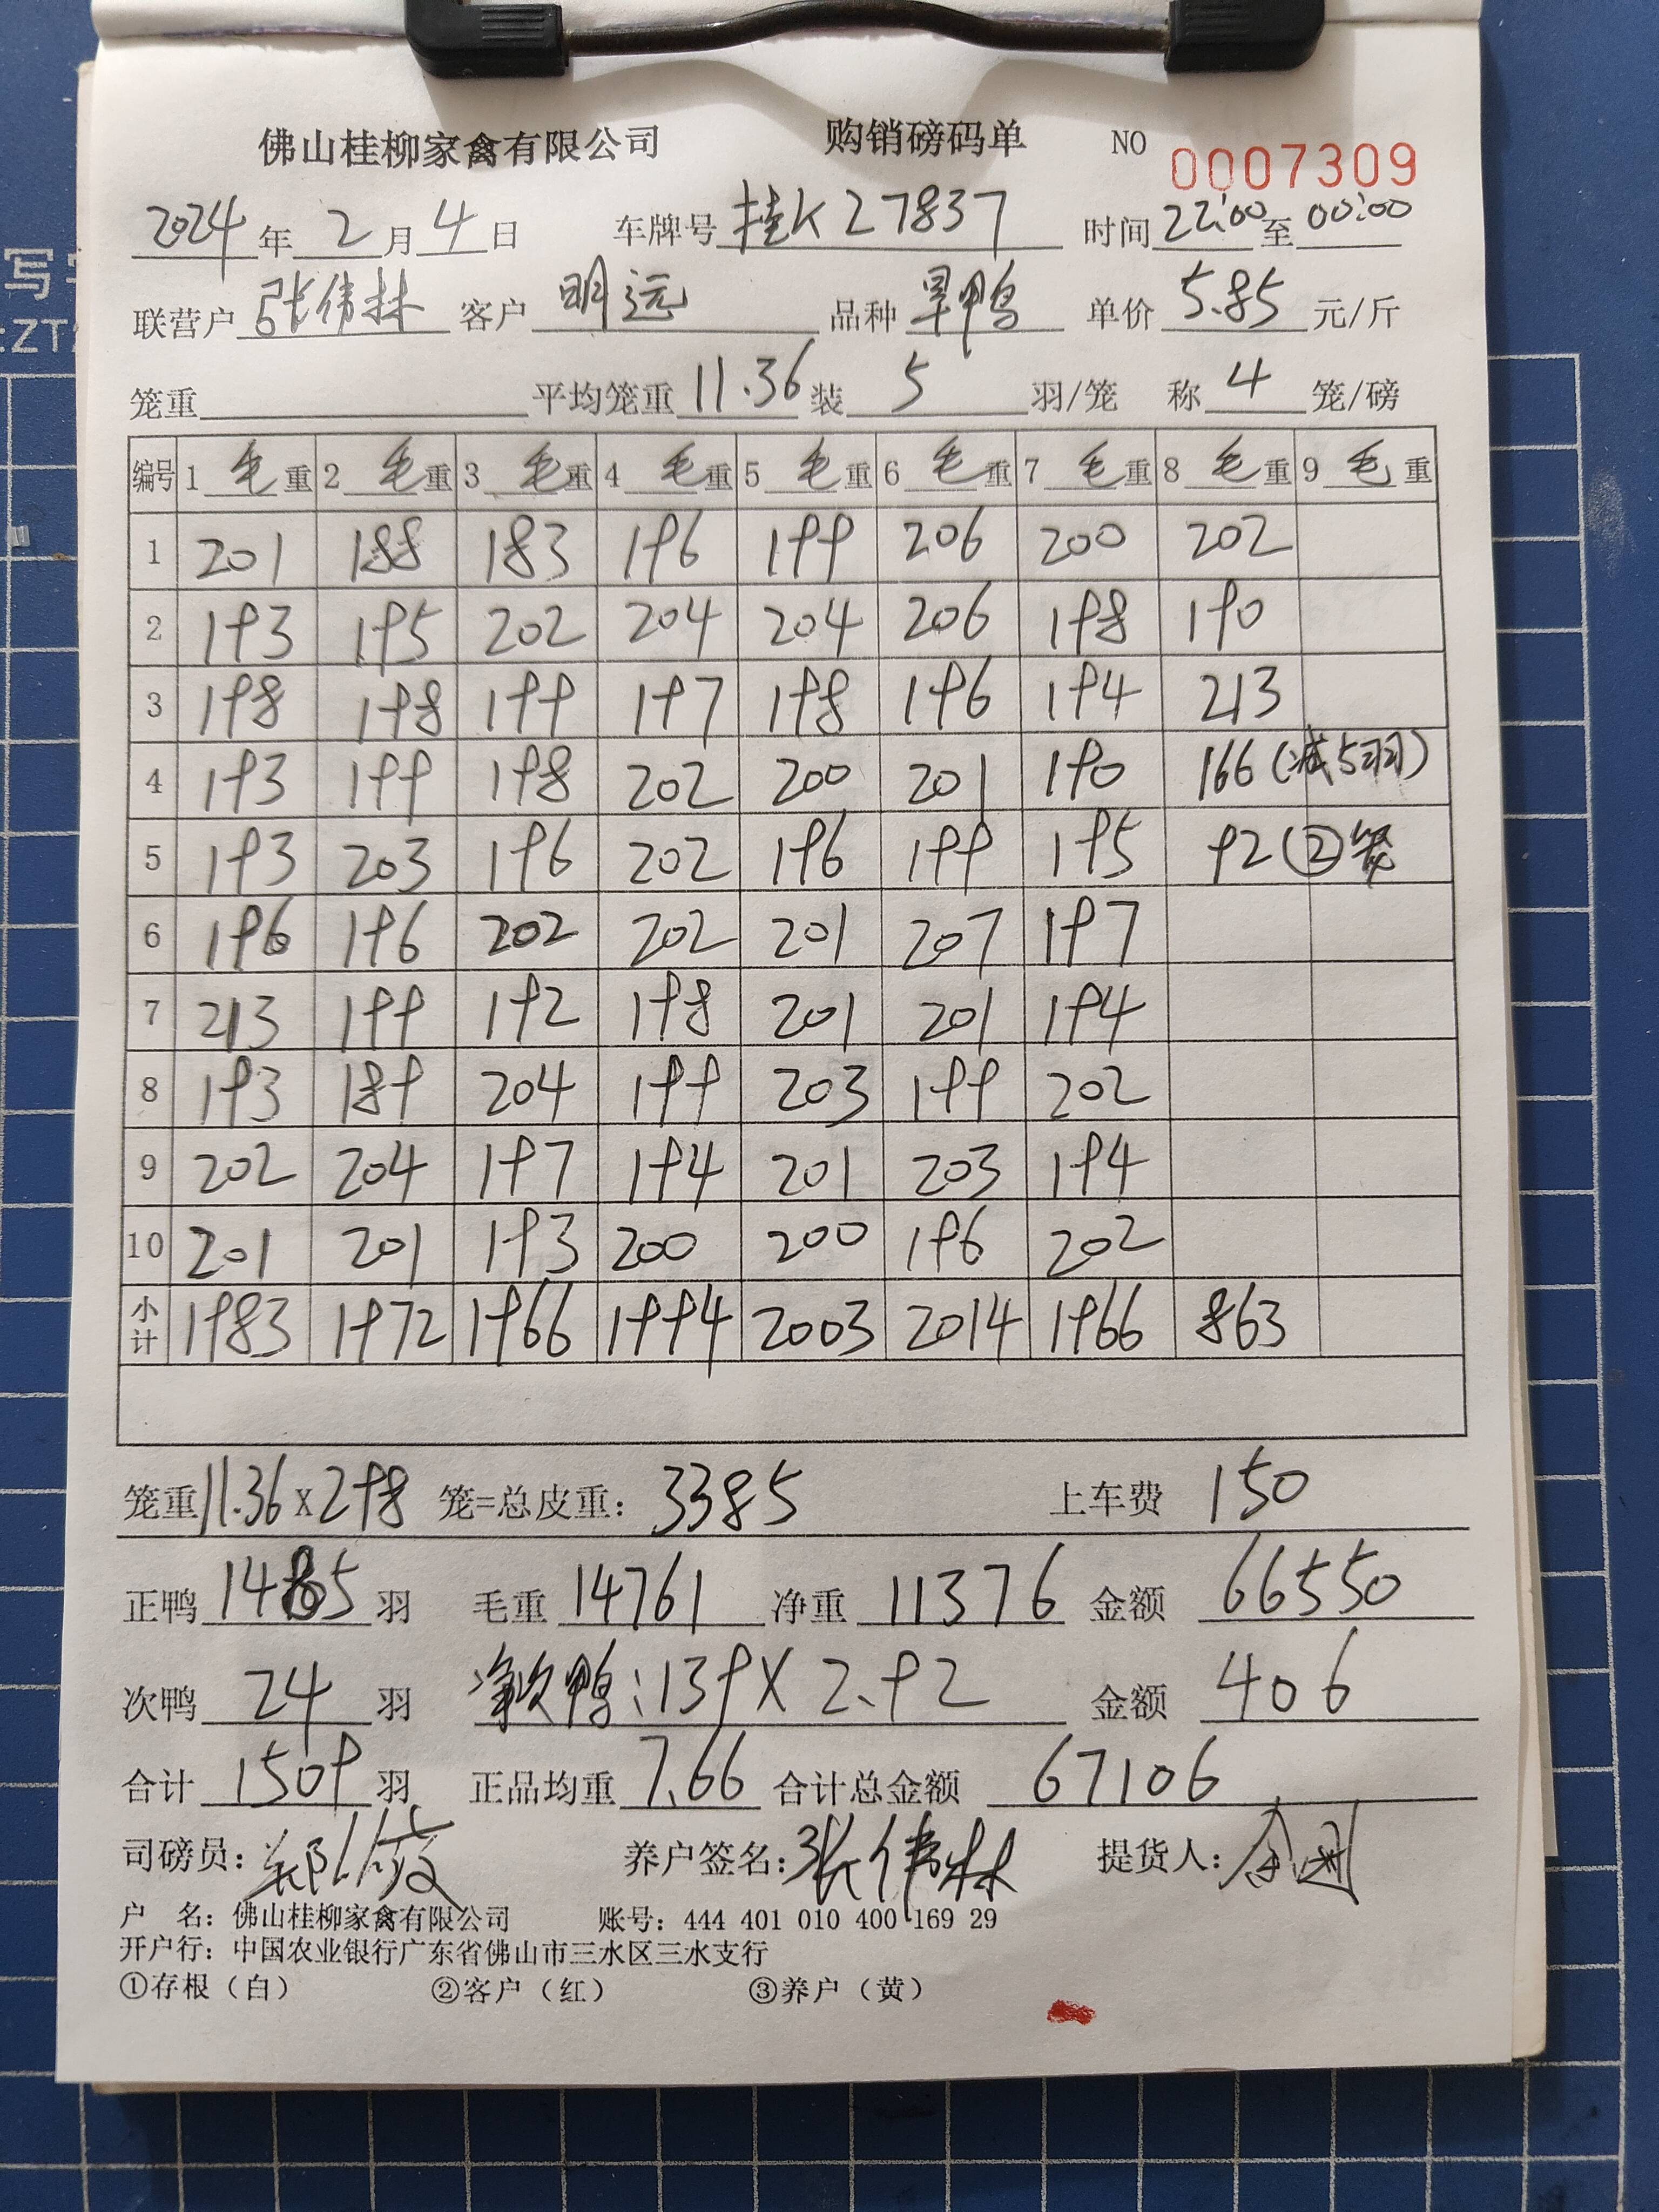 佛山桂柳家禽有限公司 购销磅码单 NO 0007309
2024年 2月 4日 车牌号 桂K27837 时间 22:00 至 00:00
联营户 张伟林 客户 明远 品种 旱鸭 单价 5.85 元/斤
笼重 平均笼重 11.36 装 5 羽/笼 称 4 笼/磅
编号 1 毛重 2 毛重 3 毛重 4 毛重 5 毛重 6 毛重 7 毛重 8 毛重 9 毛重
1 201 188 183 196 199 206 200 202
2 193 195 202 204 204 206 198 190
3 198 198 199 197 198 196 194 213
4 193 199 198 202 200 201 190 166(减5羽)
5 193 203 196 202 196 199 195 92 ②笼
6 196 196 202 202 201 207 197
7 213 199 192 198 201 201 194
8 193 189 204 199 203 199 202
9 202 204 197 194 201 203 194
10 201 201 193 200 200 196 202
小计 1983 1972 1966 1994 2003 2014 1966 863
笼重 11.36×298 笼=总皮重: 3385 上车费 150
正鸭 1485 羽 毛重 14761 净重 11376 金额 66550
次鸭 24 羽 净次鸭:139×2.92 金额 406
合计 1509 羽 正品均重 7.66 合计总金额 67106
司磅员: 养户签名:张伟林 提货人:
户 名: 佛山桂柳家禽有限公司 账号: 444 401 010 400 169 29
开户行: 中国农业银行广东省佛山市三水区三水支行
①存根(白) ②客户(红) ③养户(黄)